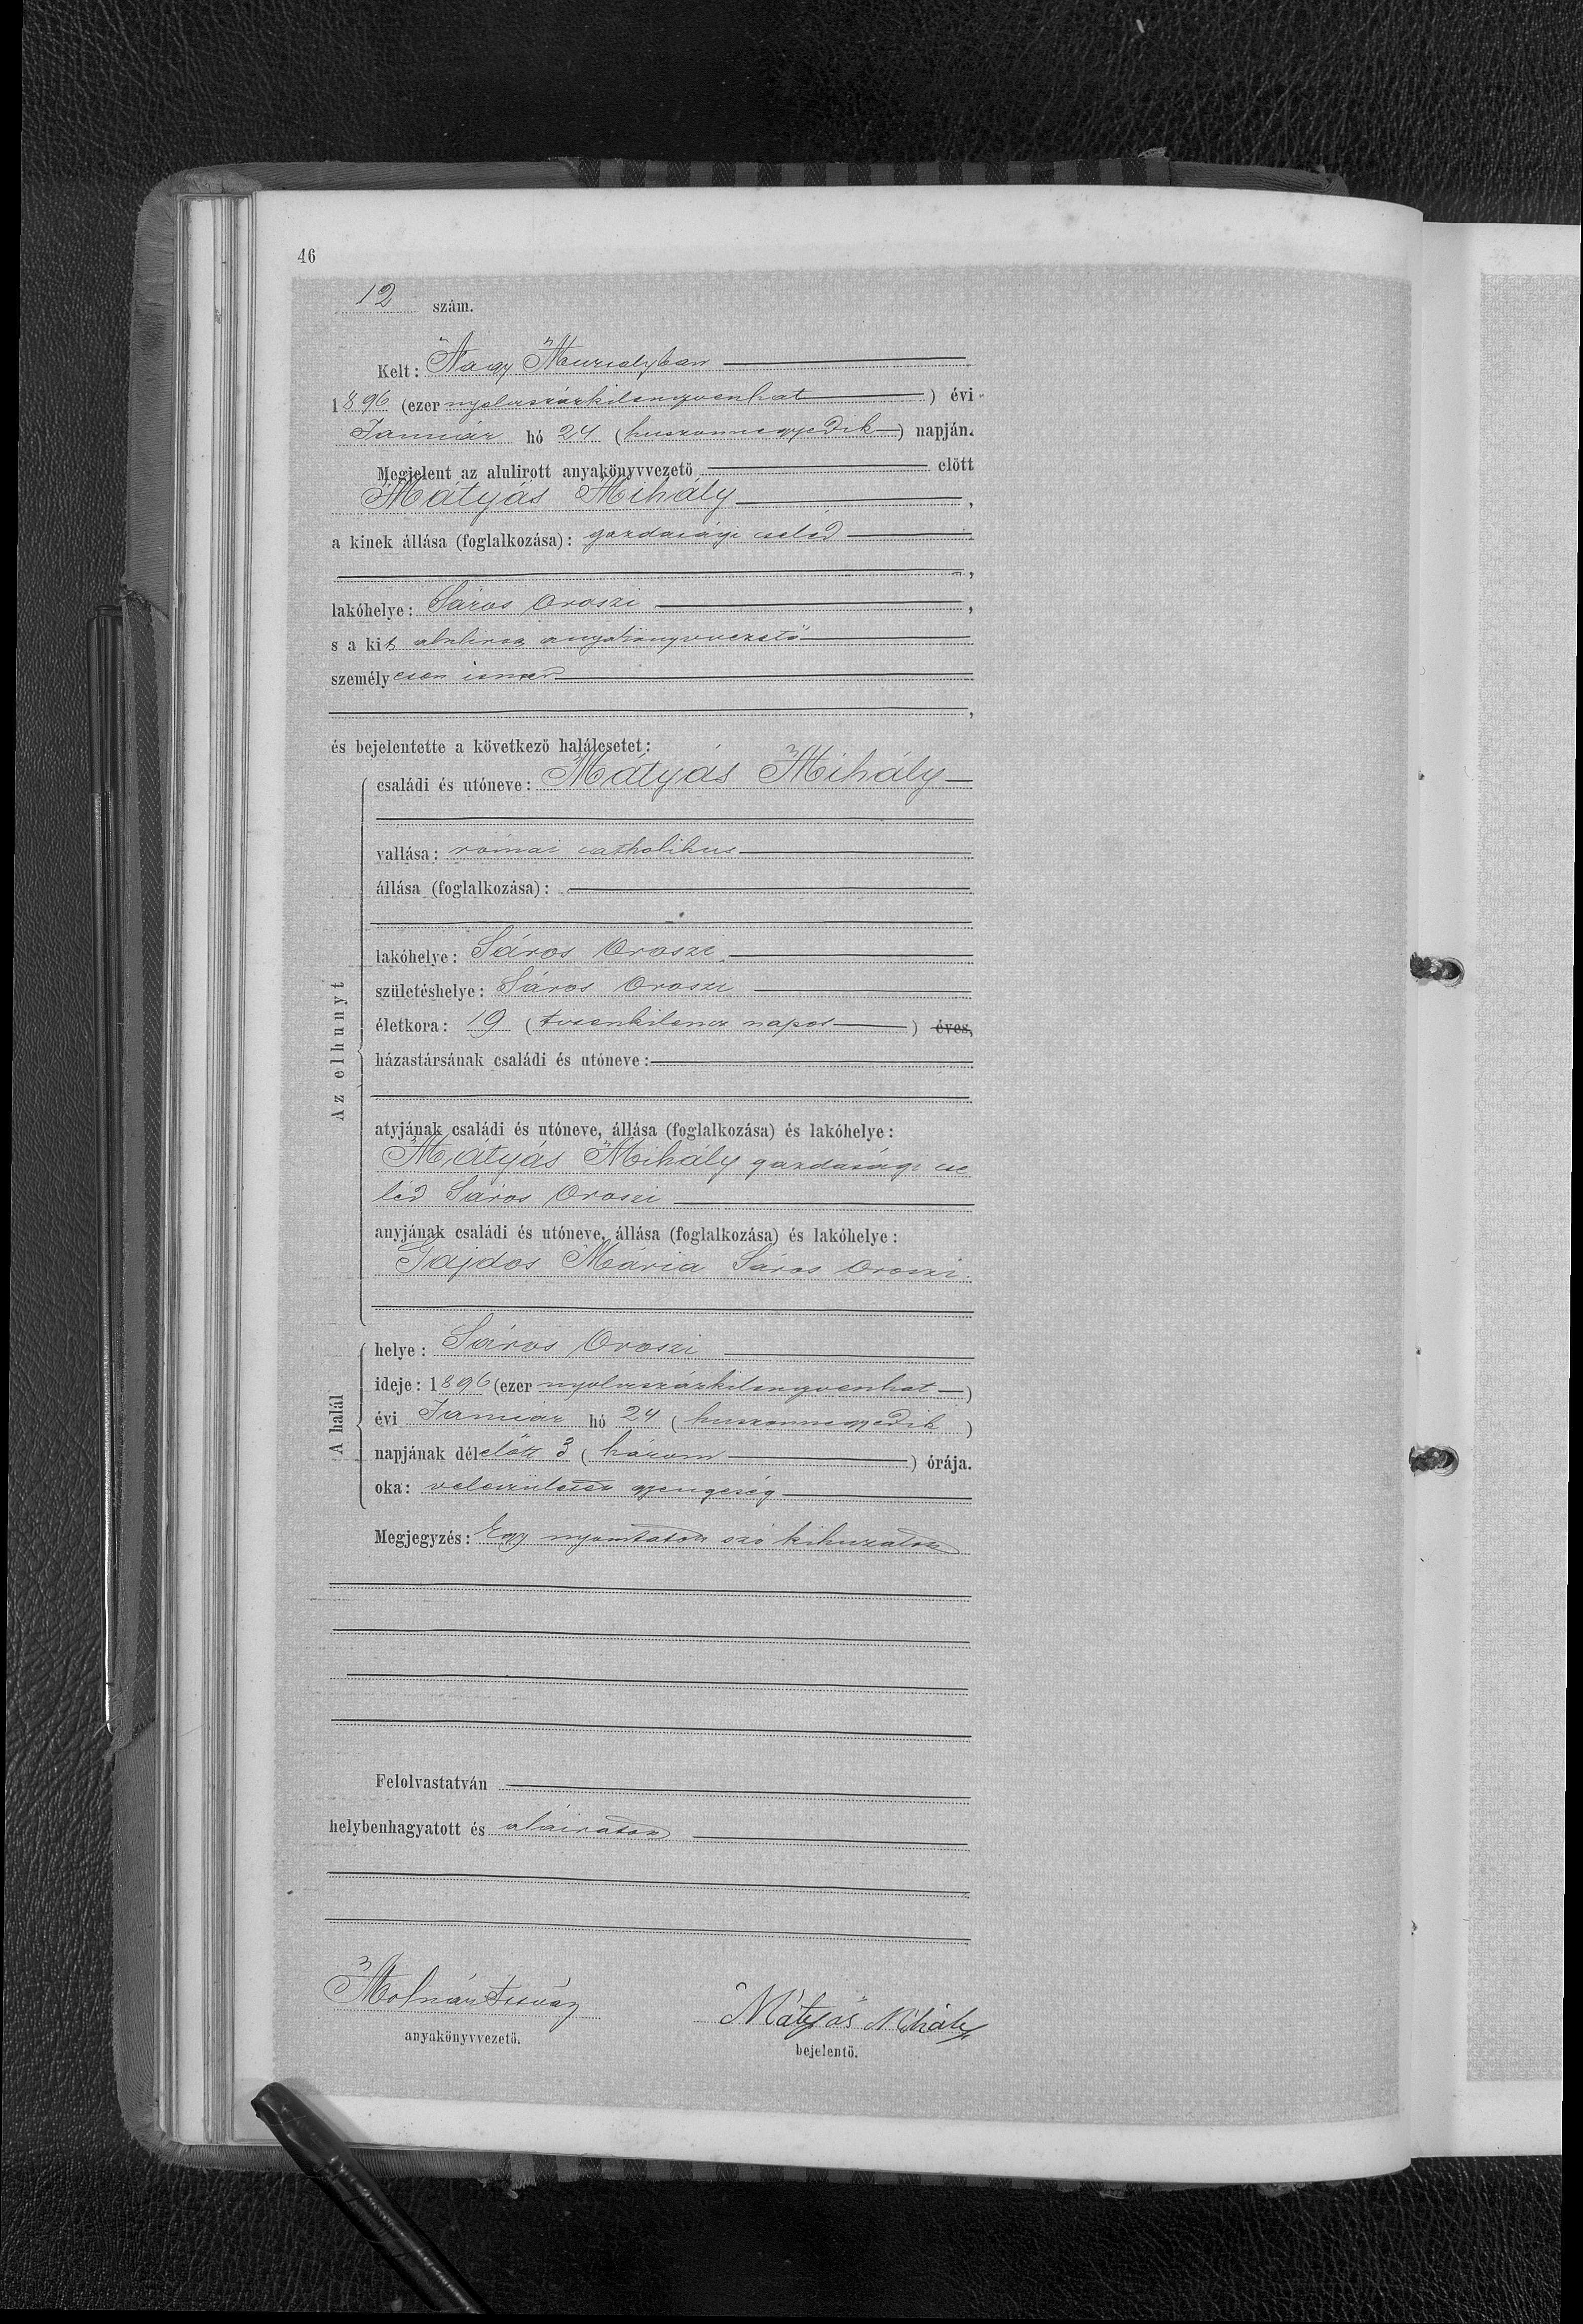 46
12 szám.
Kelt: Nagy Muzsalyban
1896 (ezer nyolczszázkilenczvenhat) évi
Január hó 24 (huszonnegyedik) napján.
Megjelent az alulirott anyakönyvvezető előtt
Mátyás Mihály,
a kinek állása (foglalkozása): gazdasági cseléd
,
lakóhelye: Sáros Oroszi,
s a kit alulirott anyakönyvvezető
személyesen ismer
,
és bejelentette a következő halálesetet:
Az elhunyt
családi és utóneve: Mátyás Mihály
vallása: római catholikus
állása (foglalkozása):
lakóhelye: Sáros Oroszi
születéshelye: Sáros Oroszi
életkora: 19 (tizenkilencz napos) éves,
házastársának családi és utóneve:
atyjának családi és utóneve, állása (foglalkozása) és lakóhelye:
Mátyás Mihály gazdasági cse
léd Sáros Oroszi
anyjának családi és utóneve, állása (foglalkozása) és lakóhelye:
Gajdos Mária Sáros Oroszi.
A halál
helye: Sáros Oroszi
ideje: 1896 (ezer nyolczszázkilenczvenhat)
évi Január hó 24 (huszonnegyedik)
napjának délelőtt 3 (három) órája.
oka: veleszületett gyengeség
Megjegyzés: Egy nyomtatott szó kihuzatott
Felolvastatván
helybenhagyatott és aláiratott
Molnár István
anyakönyvvezető.
Mátyás Mihály
bejelentő.